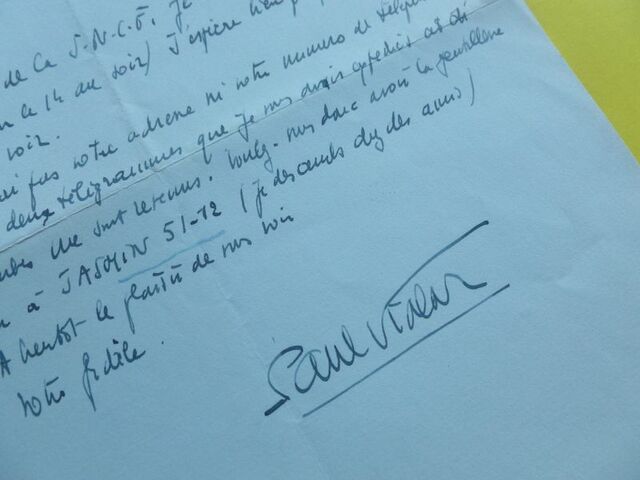 de la S.N.C.F. je
le 14 au soir) J'espère bien
voir.
pas votre adresse ni votre numéro de téléph
deux télégrammes que je vous avais expédiés
me sont revenus. Voulez-vous donc avoir la gentillesse
à JASMIN 51-12 (je descends chez des amis)
A bientôt le plaisir de vous voir
Votre fidèle.
Paul Vialar